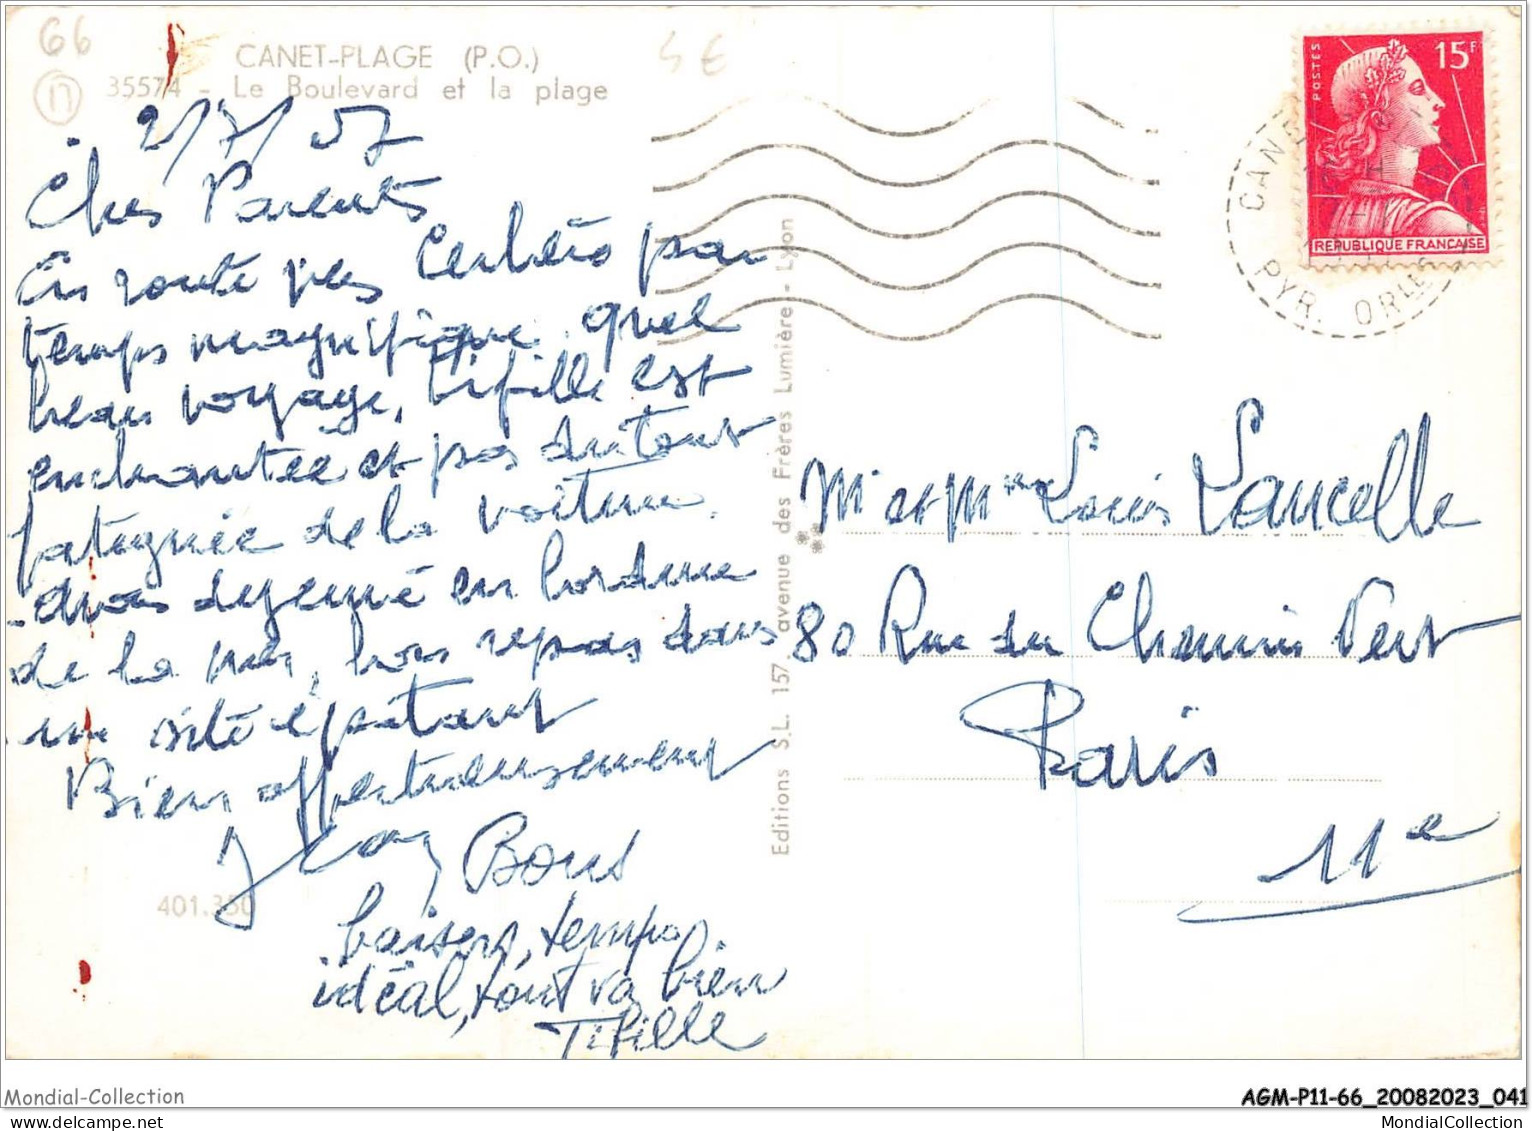 66
4€
17
CANET-PLAGE (P.O.)
35574 - Le Boulevard et la plage
2/7/57
Chers Parents
En route vers Cerbère par
temps magnifique. Quel
beau voyage, Tifille est
enchantée et pas du tout
fatiguée de la voiture.
avons déjeuné en bordure
de la mer, bon repas dans
un site épatant
Bien affectueusement
Jean
Bons
baisers, temps
idéal, tout va bien
Tifille
401.350
Editions S.L. 157, avenue des Frères Lumière - Lyon
POSTES
15F
REPUBLIQUE FRANÇAISE
CANE
PYR. ORLES
Mr et Mme Louis Lancelle
80 Rue du Chemin Vert
Paris
11e
Mondial-Collection
AGM-P11-66_20082023_041
MondialCollection